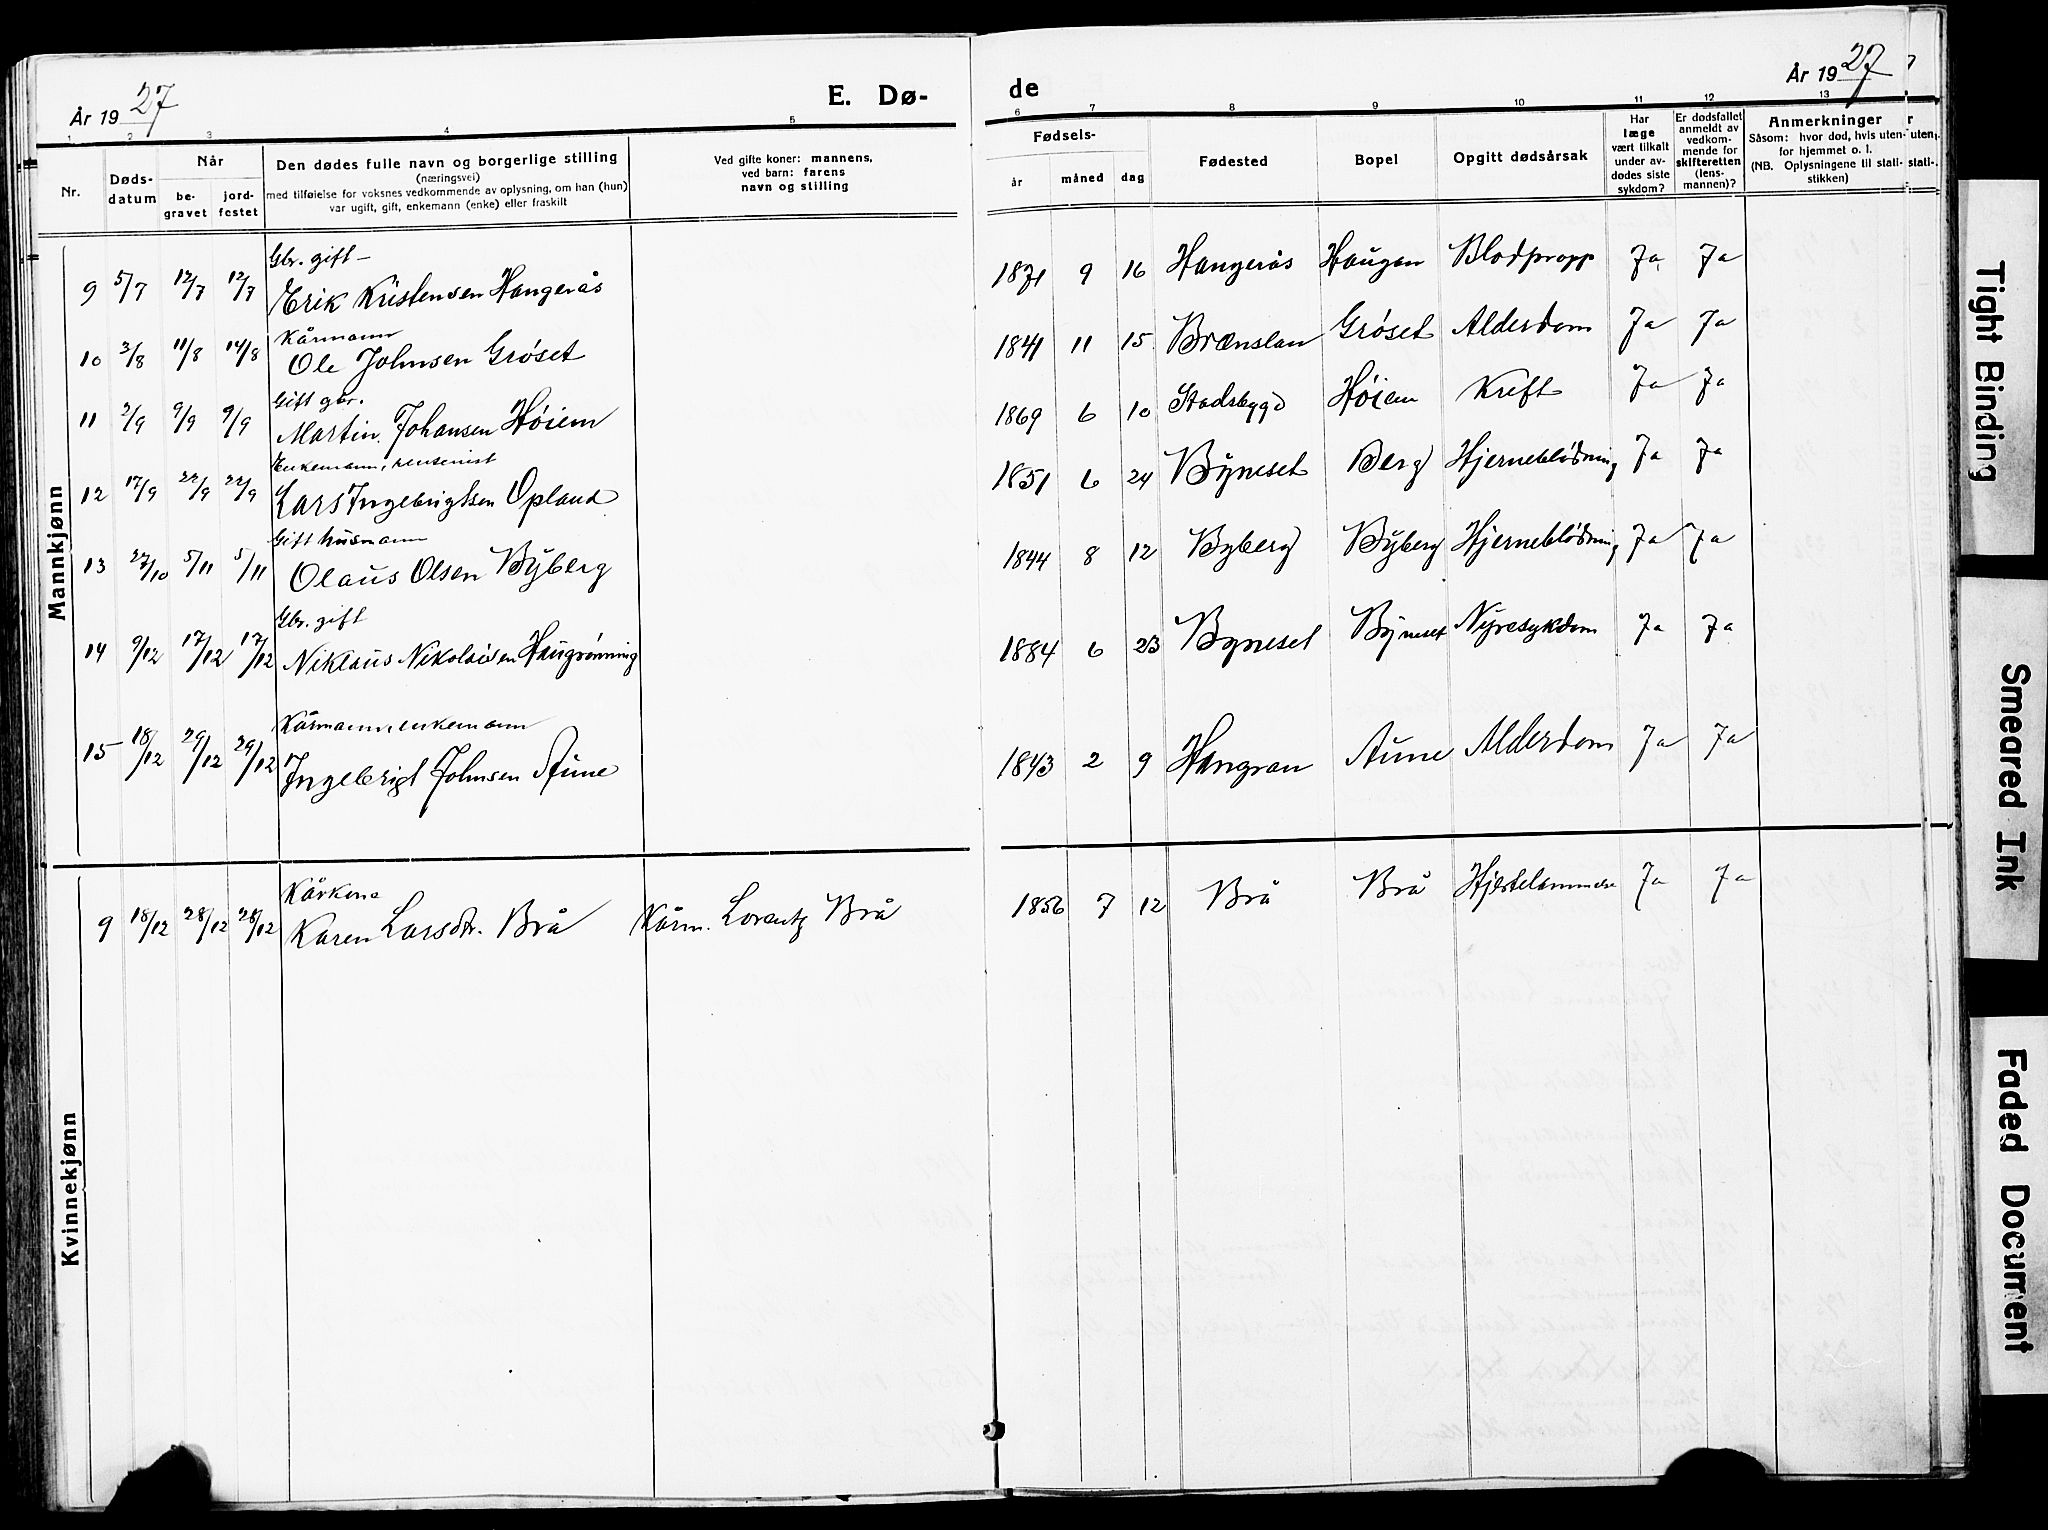 År 1927
E. Dø-
de
År 1927
1 2 3 4 5 6 7 8 9 10 11 12 13
Nr.
Døds-
datum
Når
be-
gravet
jord-
festet
Den dødes fulle navn og borgerlige stilling
(næringsvei)
med tilføielse for voksnes vedkommende av oplysning, om han (hun)
var ugift, gift, enkemann (enke) eller fraskilt
Ved gifte koner: mannens,
ved barn: farens
navn og stilling
Fødsels-
år måned dag
Fødested
Bopel
Opgitt dødsårsak
Har
læge
vært tilkalt
under av-
dødes siste
sykdom?
Er dødsfallet
anmeldt av
vedkom-
mende for
skifteretten
(lens-
mannen)?
Anmerkninger
Såsom: hvor død, hvis uten-
for hjemmet o. l.
(NB. Oplysningene til stati-
stikken)
Mannkjønn
Gbr. gift -
9 5/7 12/7 12/7 Erik Kristensen Hangerås 1871 9 16 Hangerås Haugan Blodpropp Ja Ja
Kårmann
10 3/8 11/8 14/8 Ole Johnsen Grøset 1841 11 15 Brenslan Grøset Alderdom Ja Ja
Gift gbr.
11 2/9 9/9 9/9 Martin Johansen Høiem 1869 6 10 Stadsbygd Høiem Kreft Ja Ja
Enkemann, rentenist
12 17/9 22/9 22/9 Lars Ingebrigtsen Opland 1851 6 24 Byneset Berg Hjerneblødning Ja Ja
Gift husmann
13 27/10 5/11 5/11 Olaus Olsen Byberg 1844 8 12 Byberg Byberg Hjerneblødning Ja Ja
Gbr. gift
14 9/12 17/12 17/12 Niklaus Nikolaisen Haugrønning 1884 6 23 Byneset Byneset Nyresykdom Ja Ja
Kårmann, enkemann
15 18/12 29/12 29/12 Ingebrigt Johnsen Aune 1843 2 9 Hangran Aune Alderdom Ja Ja
Kvinnekjønn
Kårkone
9 18/12 28/12 28/12 Karen Larsdtr. Brå Kårm. Lorentz Brå 1856 7 12 Brå Brå Hjertelammelse Ja Ja
Tight Binding
Smeared Ink
Faded Document